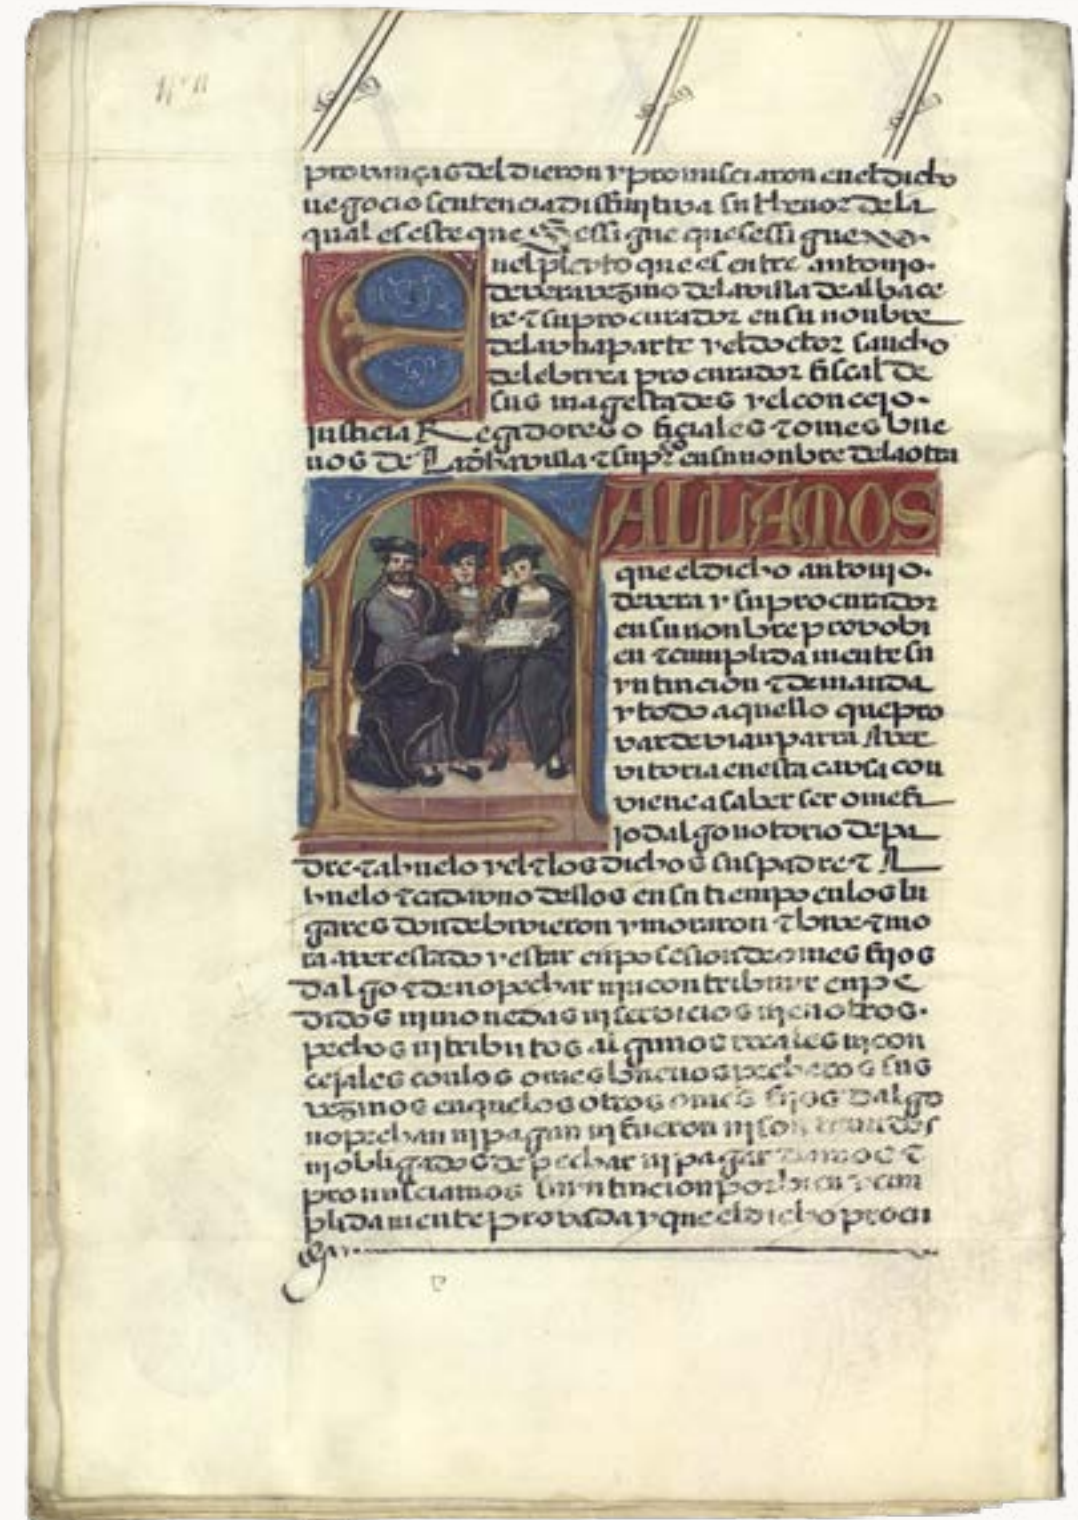 provinçias del dieron y pronusciaron en el dicho
negocio sentencia diffinitiva su thenor de la
qual es este que se sigue que se sigue
E nel pleyto que es entre antonio
de vera vezino de la villa de albace
te τ su procurador en su nonbre
de la vna parte y el doctor sancho
de lebrixa procurador fiscal de
sus magestades y el concejo
justicia Regidores oficiales τ omes bue
nos de La dha villa τ su pr en su nonbre de la otra
FALLAMOS
que el dicho antonio
de vera y su procurador
en su nonbre provo bi
en τ cunplida mente su
yntincion τ demanda
y todo aquello que pro
var devian para Aver
vitoria en esta cavsa con
viene a saber ser ome fi
jo dalgo notorio de pa
dre τ abuelo y el τ los dichos su padre τ A
buelo τ cada vno dellos en su tienpo en los lu
gares donde bivieron y moraron τ bive τ mo
ra aver estado y estar en posesion de omes fijos
dalgo τ de no pechar ni contribuyr en pe
didos ni monedas ni servicios ni en otros
pechos ni tributos algunos reales ni con
cejales con los omes buenos pecheros sus
vezinos en que los otros omes fijos dalgo
no pechan ni pagan ni fueron ni son tenudos
ni obligados de pechar ni pagar damos τ
pronusciamos su yntincion por bien y cun
plidamente provada y que el dicho procu